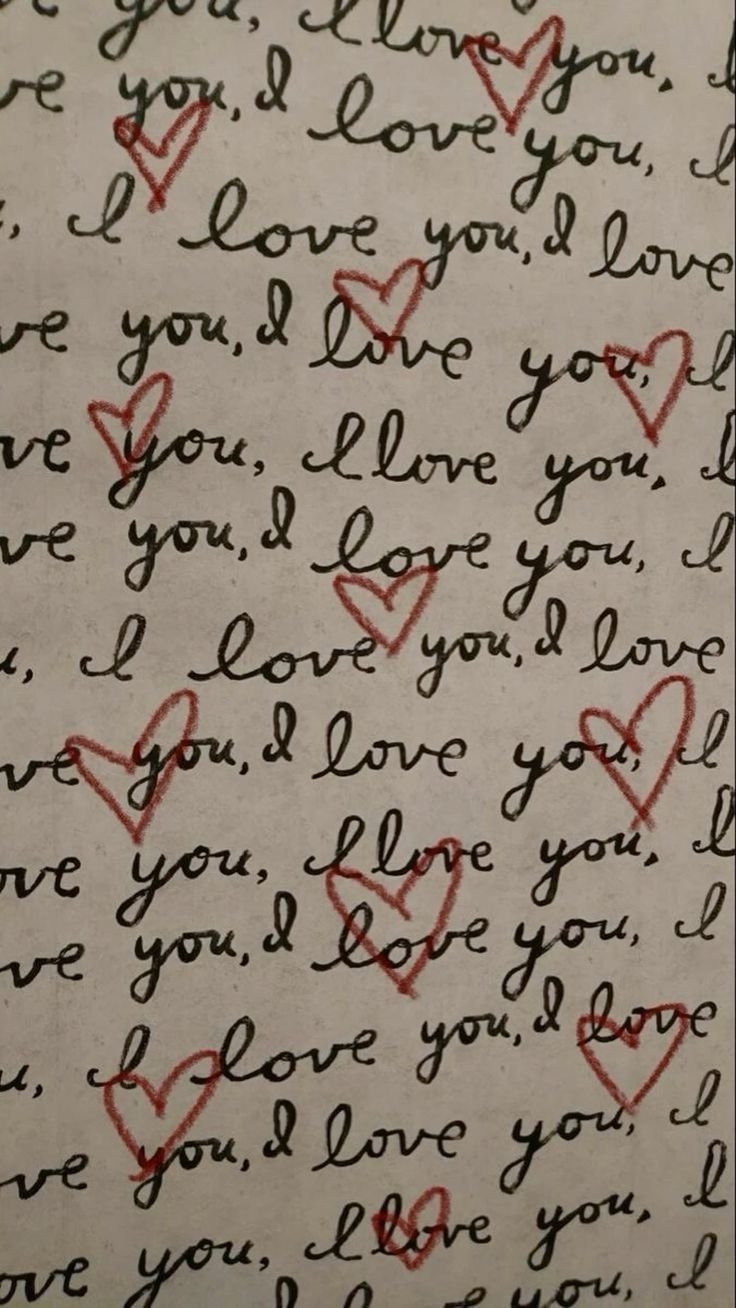 e you, I love you, I
ve you, I love you, I
, I love you, I love
ve you, I love you, I
ve you, I love you, I
ve you, I love you, I
u, I love you, I love
ve you, I love you, I
ove you, I love you, I
ve you, I love you, I
u, I love you, I love
ve you, I love you, I
ove you, I love you, I
I love you, I